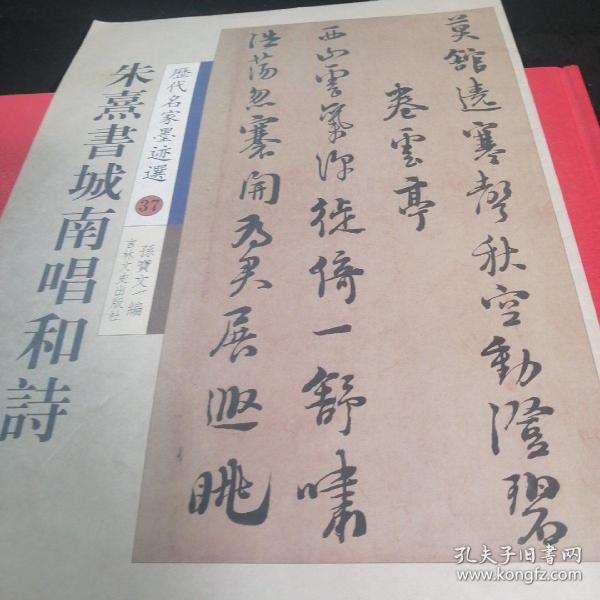 莫館遶寒聲秋空動澄碧
卷雲亭
西山雲氣深徙倚一舒嘯
浩蕩忽褰開為君展遐眺
歷代名家墨迹選
37
孫寶文 編
吉林文史出版社
朱熹書城南唱和詩
孔夫子旧书网
www.kongfz.com